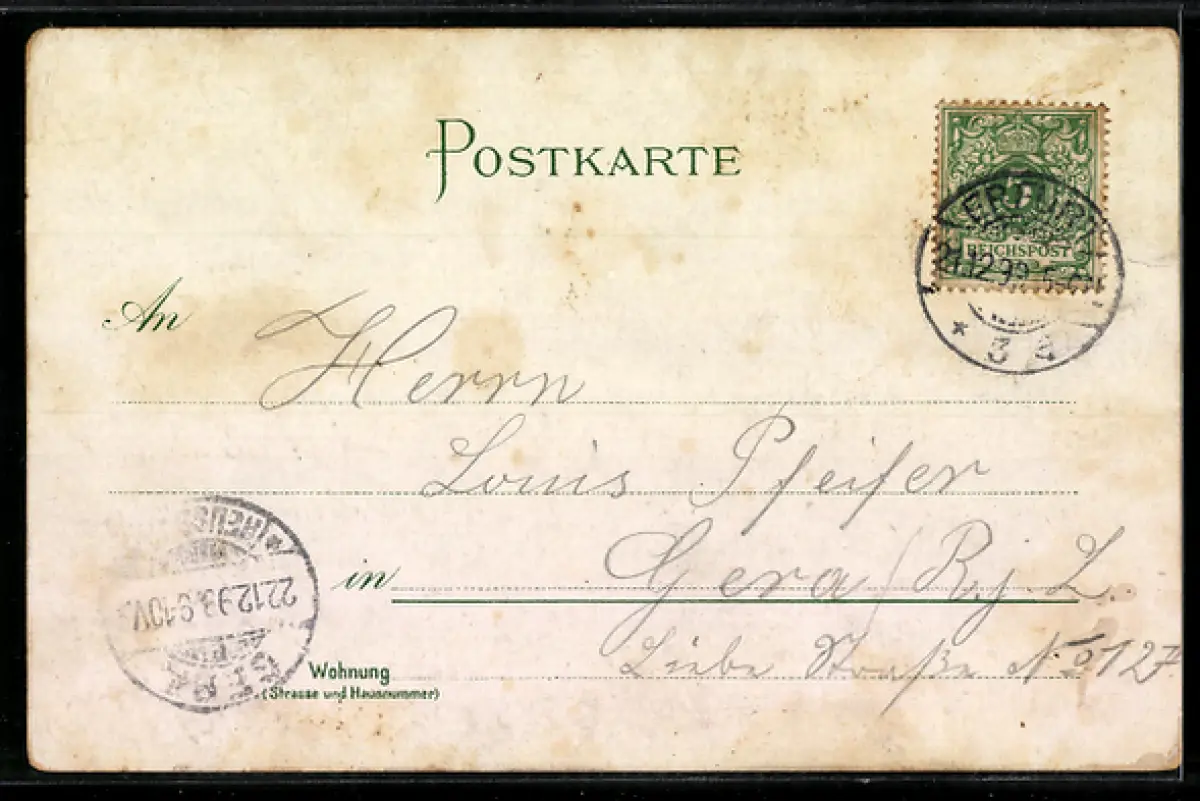 POSTKARTE
5
REICHSPOST
ERFURT
21.12.99. 5-6
* 3 a
An Herrn
Louis Pfeifer
in Gera / R.j.L.
Wohnung
(Strasse und Hausnummer)
Straße No 127
22.12.99. 9-10V.